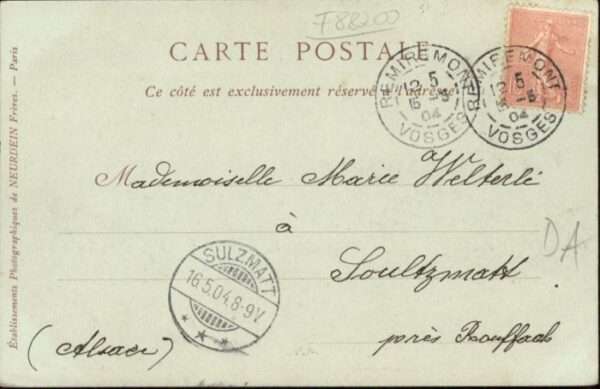 F88200
CARTE POSTALE
Ce côté est exclusivement réservé à l'adresse
REMIREMONT
12 5
15 -5
04
VOSGES
REMIREMONT
12 5
15 -5
04
VOSGES
Mademoiselle Marie Welterlé
à
Soultzmatt
DA
SULZMATT
16.5.04.8-9V
près Rouffach
(Alsace)
Établissements Photographiques de NEURDEIN Frères. — Paris